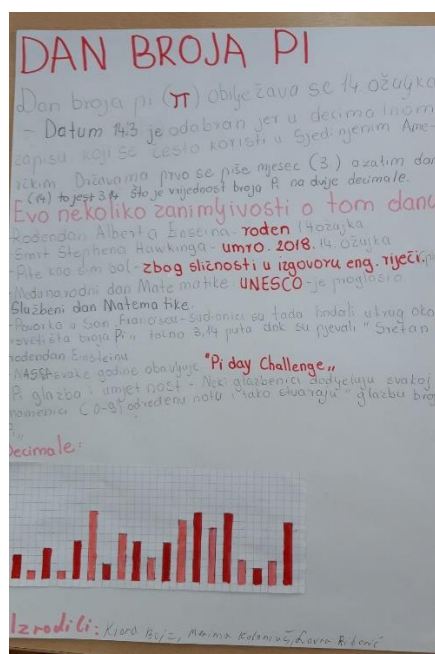 DAN BROJA PI
Dan broja pi (π) obilježava se 14. ožujka
- Datum 14.3 je odabran jer u decimalnom
zapisu koji se često koristi u Sjedinjenim Ame-
ričkim Državama prvo se piše mjesec (3.) a zatim dan
(14) to jest 3,14 što je vrijednost broja Pi na dvije decimale.
Evo nekoliko zanimljivosti o tom danu
Rođendan Alberta Ensteina - rođen 14 ožujka
Smrt Stephena Hawkinga - umro. 2018. 14. ožujka
- Pite kao sim bol - zbog sličnosti u izgovoru eng. riječi.
Međunarodni dan Matematike UNESCO - je proglasio
Službeni dan Matematike.
Povorka u San Franciscu - Sudionici su tada hodali ukrug oko
svetišta broja Pi,, točno 3,14 puta dok su pjevali "Sretan
rođendan Einsteinu
svake godine objavljuje "Pi day Challenge,,
Pi glazba i umjetnost - Neki glazbenici dodjeljuju svakoj
znamenici (0-9) određenu notu i tako stvaraju "glazbu broja
Decimale:
Izradili: